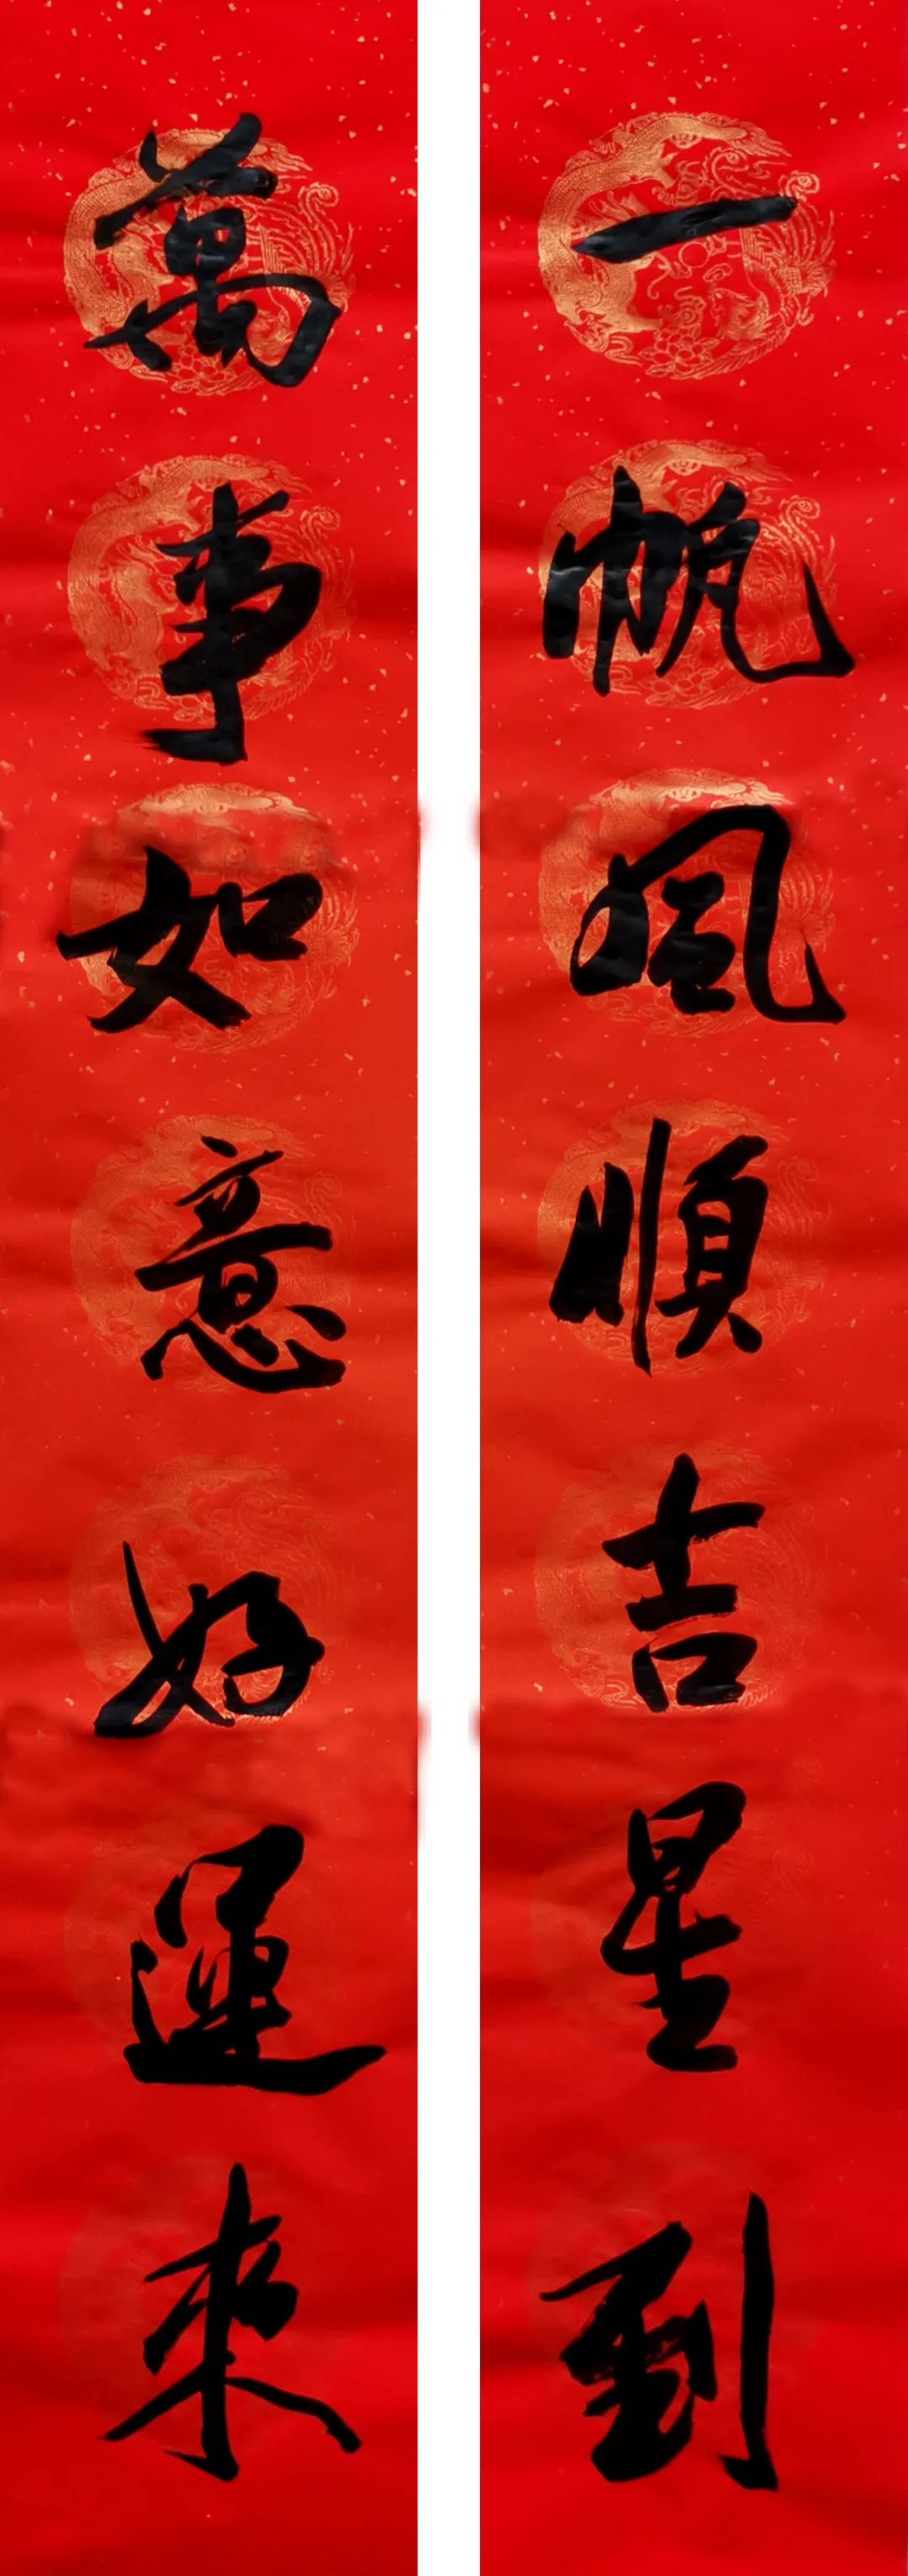 一帆風順吉星到
萬事如意好運來